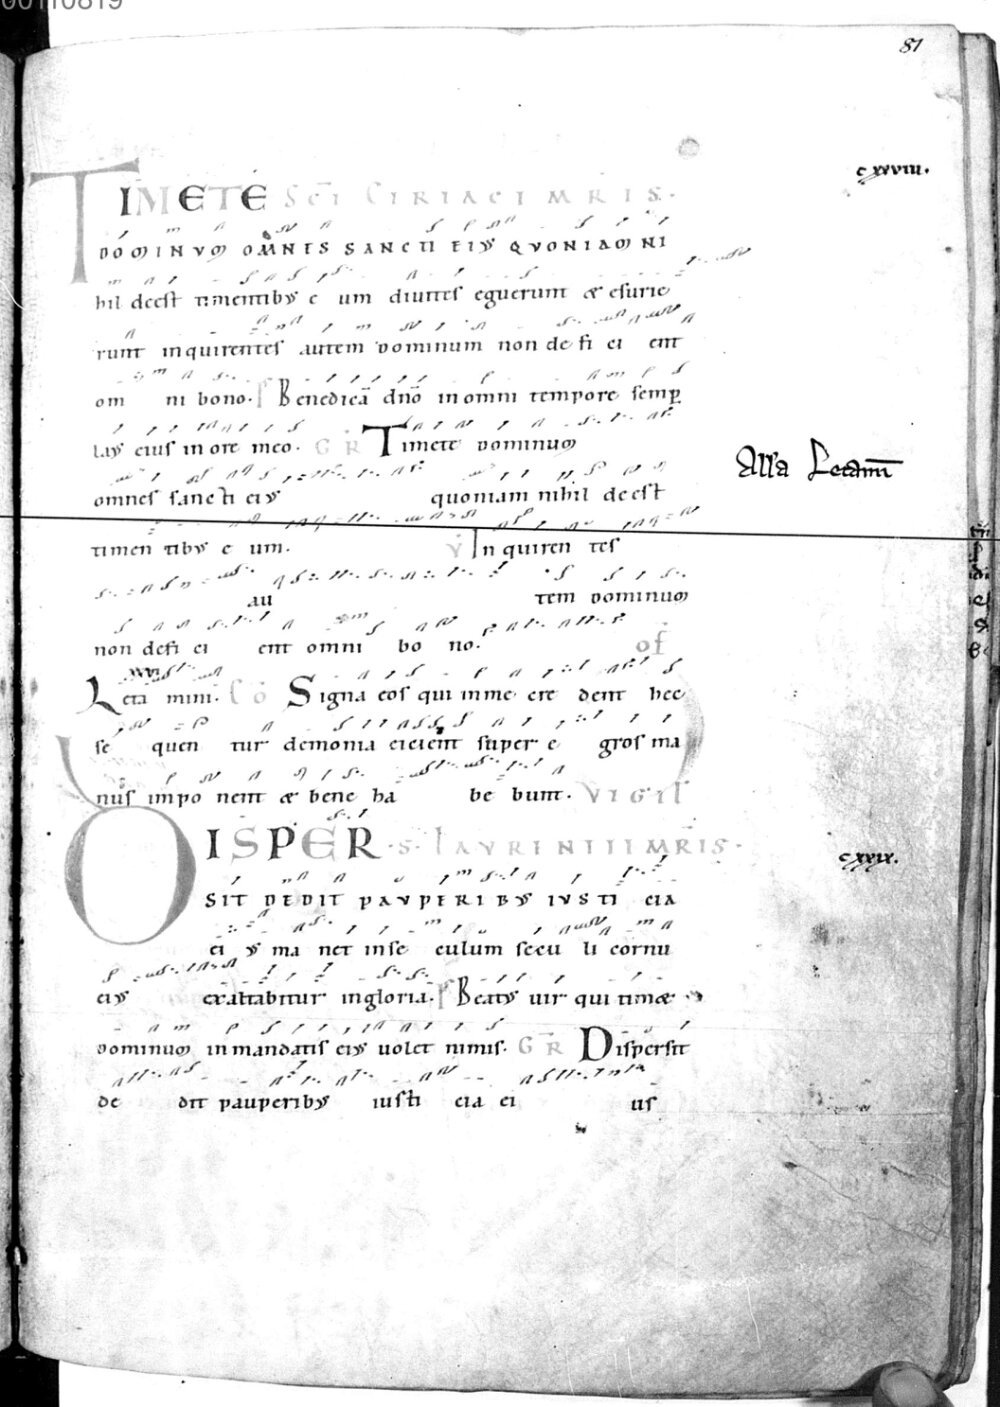 00110819
81
cxxviii.
TIMETE SCI CIRIACI MRIS.
DOMINUM OMNES SANCTI EIUS QUONIAM NI
hil deest timentibus e um divites eguerunt & esurie
runt inquirentes autem dominum non de fi ci ent
om ni bono. Benedicā dn̄o in omni tempore semp̱
laus eius in ore meo. GR Timete dominum
omnes sancti eius quoniam nihil deest
All'a Letami
timen tibus e um. V Inquiren tes
au tem dominum
non defi ci ent omni bo no. of
Leta mini. CO Signa eos qui in me cre dent hec
se quen tur demonia eicient super e gros ma
nus impo nent & bene ha be bunt. VIGIL
DISPER S. LAURENTII MRIS.
cxxix.
SIT DEDIT PAUPERIBUS IUSTI cia
ei us ma net in se culum secu li cornu
eius exaltabitur in gloria. Beatus vir qui tim&
dominum in mandatis eius volet nimis. GR Dispersit
de dit pauperibus iusti cia ei us